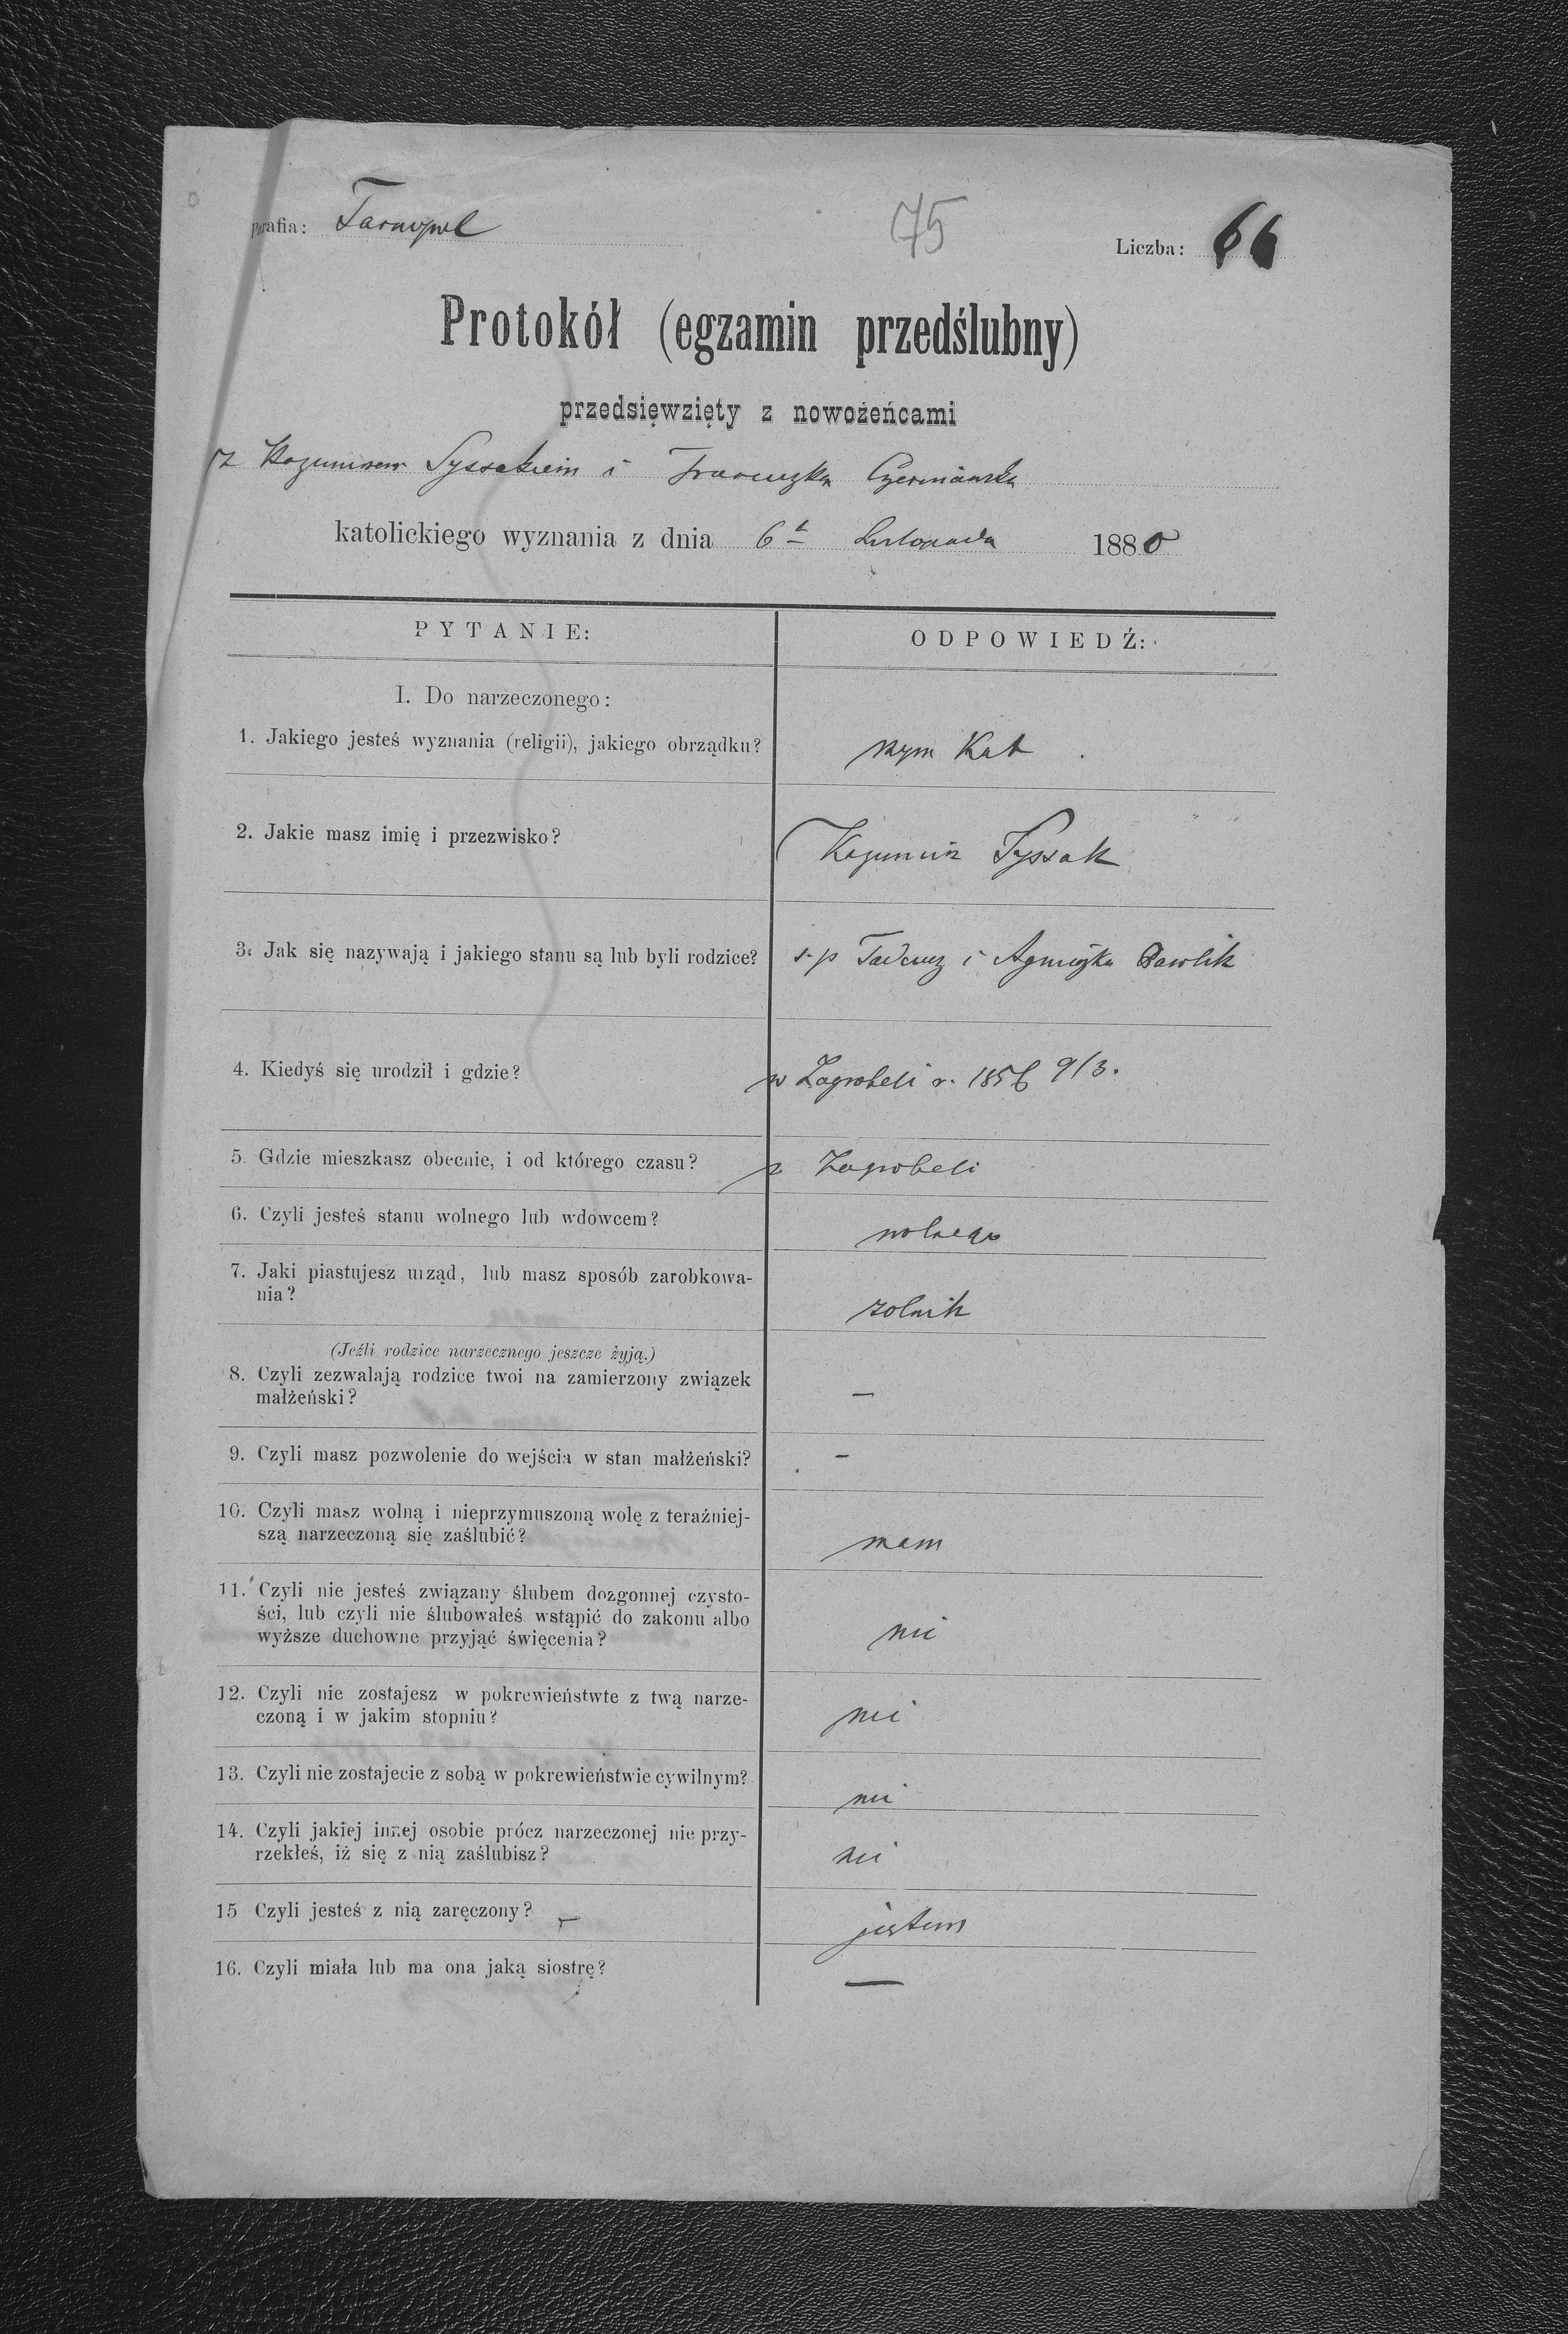 Parafia: Tarnopol 75 Liczba: 66
Protokół (egzamin przedślubny)
przedsięwzięty z nowożeńcami
z Kazimirem Syssakiem i Franciszka Czerniawska
katolickiego wyznania z dnia 6t Listopada 1880
PYTANIE: ODPOWIEDŹ:
I. Do narzeczonego:
1. Jakiego jesteś wyznania (religii), jakiego obrządku? rzym Kat
2. Jakie masz imię i przezwisko? Kazimirz Syssak
3. Jak się nazywają i jakiego stanu są lub byli rodzice? s. p Tadeusz i Agnieszka Pawlik
4. Kiedyś się urodził i gdzie? w Zagrobeli r. 1856 9/3.
5. Gdzie mieszkasz obecnie, i od którego czasu? z Zagrobeli
6. Czyli jesteś stanu wolnego lub wdowcem? wolnego
7. Jaki piastujesz urząd, lub masz sposób zarobkowa-
nia? rolnik
(Jeźli rodzice narzecznego jeszcze żyją.)
8. Czyli zezwalają rodzice twoi na zamierzony związek
małżeński? —
9. Czyli masz pozwolenie do wejścia w stan małżeński? -
10. Czyli masz wolną i nieprzymuszoną wolę z teraźniej-
szą narzeczoną się zaślubić? mam
11. Czyli nie jesteś związany ślubem dozgonnej czysto-
ści, lub czyli nie ślubowałeś wstąpić do zakonu albo
wyższe duchowne przyjąć święcenia? nie
12. Czyli nie zostajesz w pokrewieństwte z twą narze-
czoną i w jakim stopniu? nie
13. Czyli nie zostajecie z sobą w pokrewieństwie cywilnym? nie
14. Czyli jakiej innej osobie prócz narzeczonej nie przy-
rzekłeś, iż się z nią zaślubisz? nie
15 Czyli jesteś z nią zaręczony? jestem
16. Czyli miała lub ma ona jaką siostrę? —